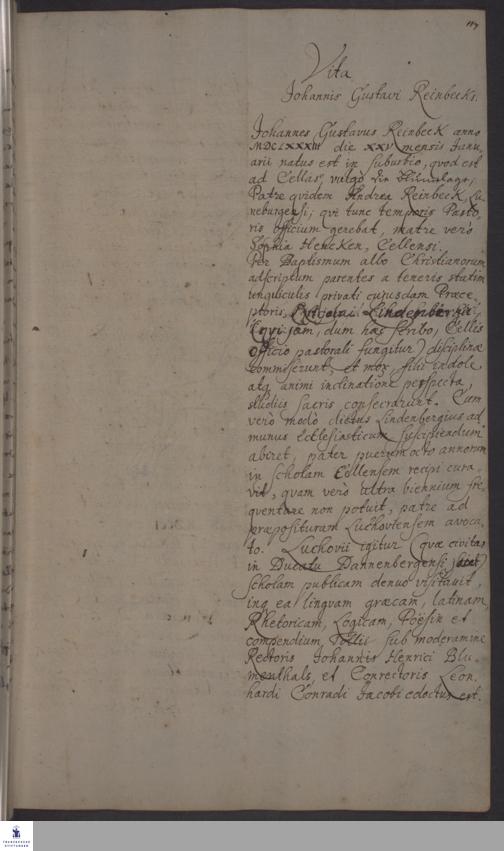 Vita
Johannis Gustavi Reinbecks.
Johannes Gustavus Reinbeck anno
MDCLXXXIII die XXV mensis Janu,
arii natus est in suburbio, quod est
ad Cellas, vulgò die
Patre quidem Andrea Reinbeck, Lu,
neburgensi; qui tunc temporis Pasto,
ris officium gerebat, matre verò
Sophia Hencken, Cellensi.
Per Baptismum albo Christianorum
adscriptum parentes a teneris statim
unguiculis privati cujusdam Præce,
ptoris, Lindenbergii
(qui jam, dum hæc scribo, Cellis
officio pastorali fungitur) disciplinæ
commiserunt, et mox, filii indole
atq animi inclinatione perspecta,
studiis sacris consecrarunt. Cum
verò modò dictus Lindenbergius ad
munus ecclesiasticum suscipiendum
abiret, pater puerum octo annorum
in scholam Cellensem recipi cura,
vit, quam verò ultra biennium fre,
quentare non potuit, patre ad
præposituram Luchoviensem avoca,
to. Luchovii igitur (quæ civitas
in Ducatu Dannenbergensi
scholam publicam denuo visitavit,
inq ea linguam græcam, latinam,
Rhetoricam, Logicam, Poësin et
compendium sub moderamine
Rectoris Johannis Henrici Blu,
menthals, et Conrectoris Leon,
hardi Conradi Jacobi edoctus est.
FRANCKESCHE
STIFTUNGEN